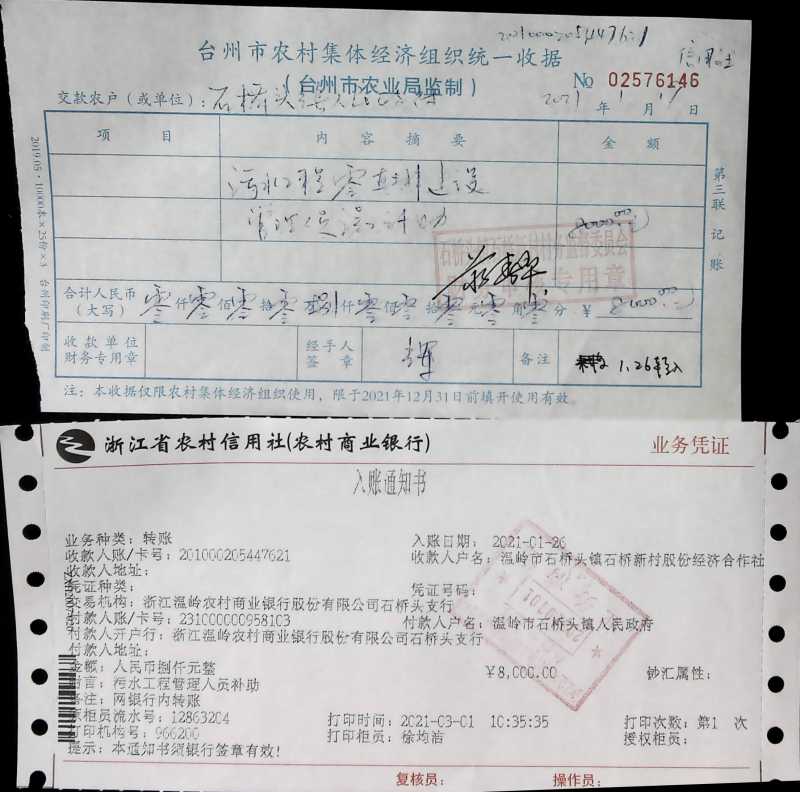 201000205447621
信用社
台州市农村集体经济组织统一收据
(台州市农业局监制)
№ 02576146
交款农户(或单位):石桥头镇人民政府
2021年1月17日
项 目 内 容 摘 要 金 额
污水工程零直排建设
管理人员补助 8000.00
石桥头镇石桥新村村务监督委员会
专用章
合计人民币
(大写) 零仟零佰零拾零万捌仟零佰零拾零元零角零分 ¥ 8000.00
收款单位
财务专用章
经手人
签 章
备注 1.26转入
注:本收据仅限农村集体经济组织使用,限于2021年12月31日前填开使用有效。
第三联 记账
2019.05·10000本×25份×3 台州印刷厂印制
浙江省农村信用社(农村商业银行) 业务凭证
入账通知书
业务种类:转账 入账日期: 2021-01-26
收款人账/卡号:201000205447621 收款人户名:温岭市石桥头镇石桥新村股份经济合作社
收款人地址:
凭证种类: 凭证号码:
交易机构:浙江温岭农村商业银行股份有限公司石桥头支行
付款人账/卡号:231000000958103 付款人户名:温岭市石桥头镇人民政府
付款人开户行:浙江温岭农村商业银行股份有限公司石桥头支行
付款人地址:
金额:人民币捌仟元整 ¥8,000.00 钞汇属性:
附言:污水工程管理人员补助
备注:网银行内转账
原柜员流水号:12863204 打印时间:2021-03-01 10:35:35 打印次数:第1 次
打印机构号:966200 打印柜员:徐均洁 授权柜员:
提示:本通知书须银行签章有效!
复核员: 操作员: